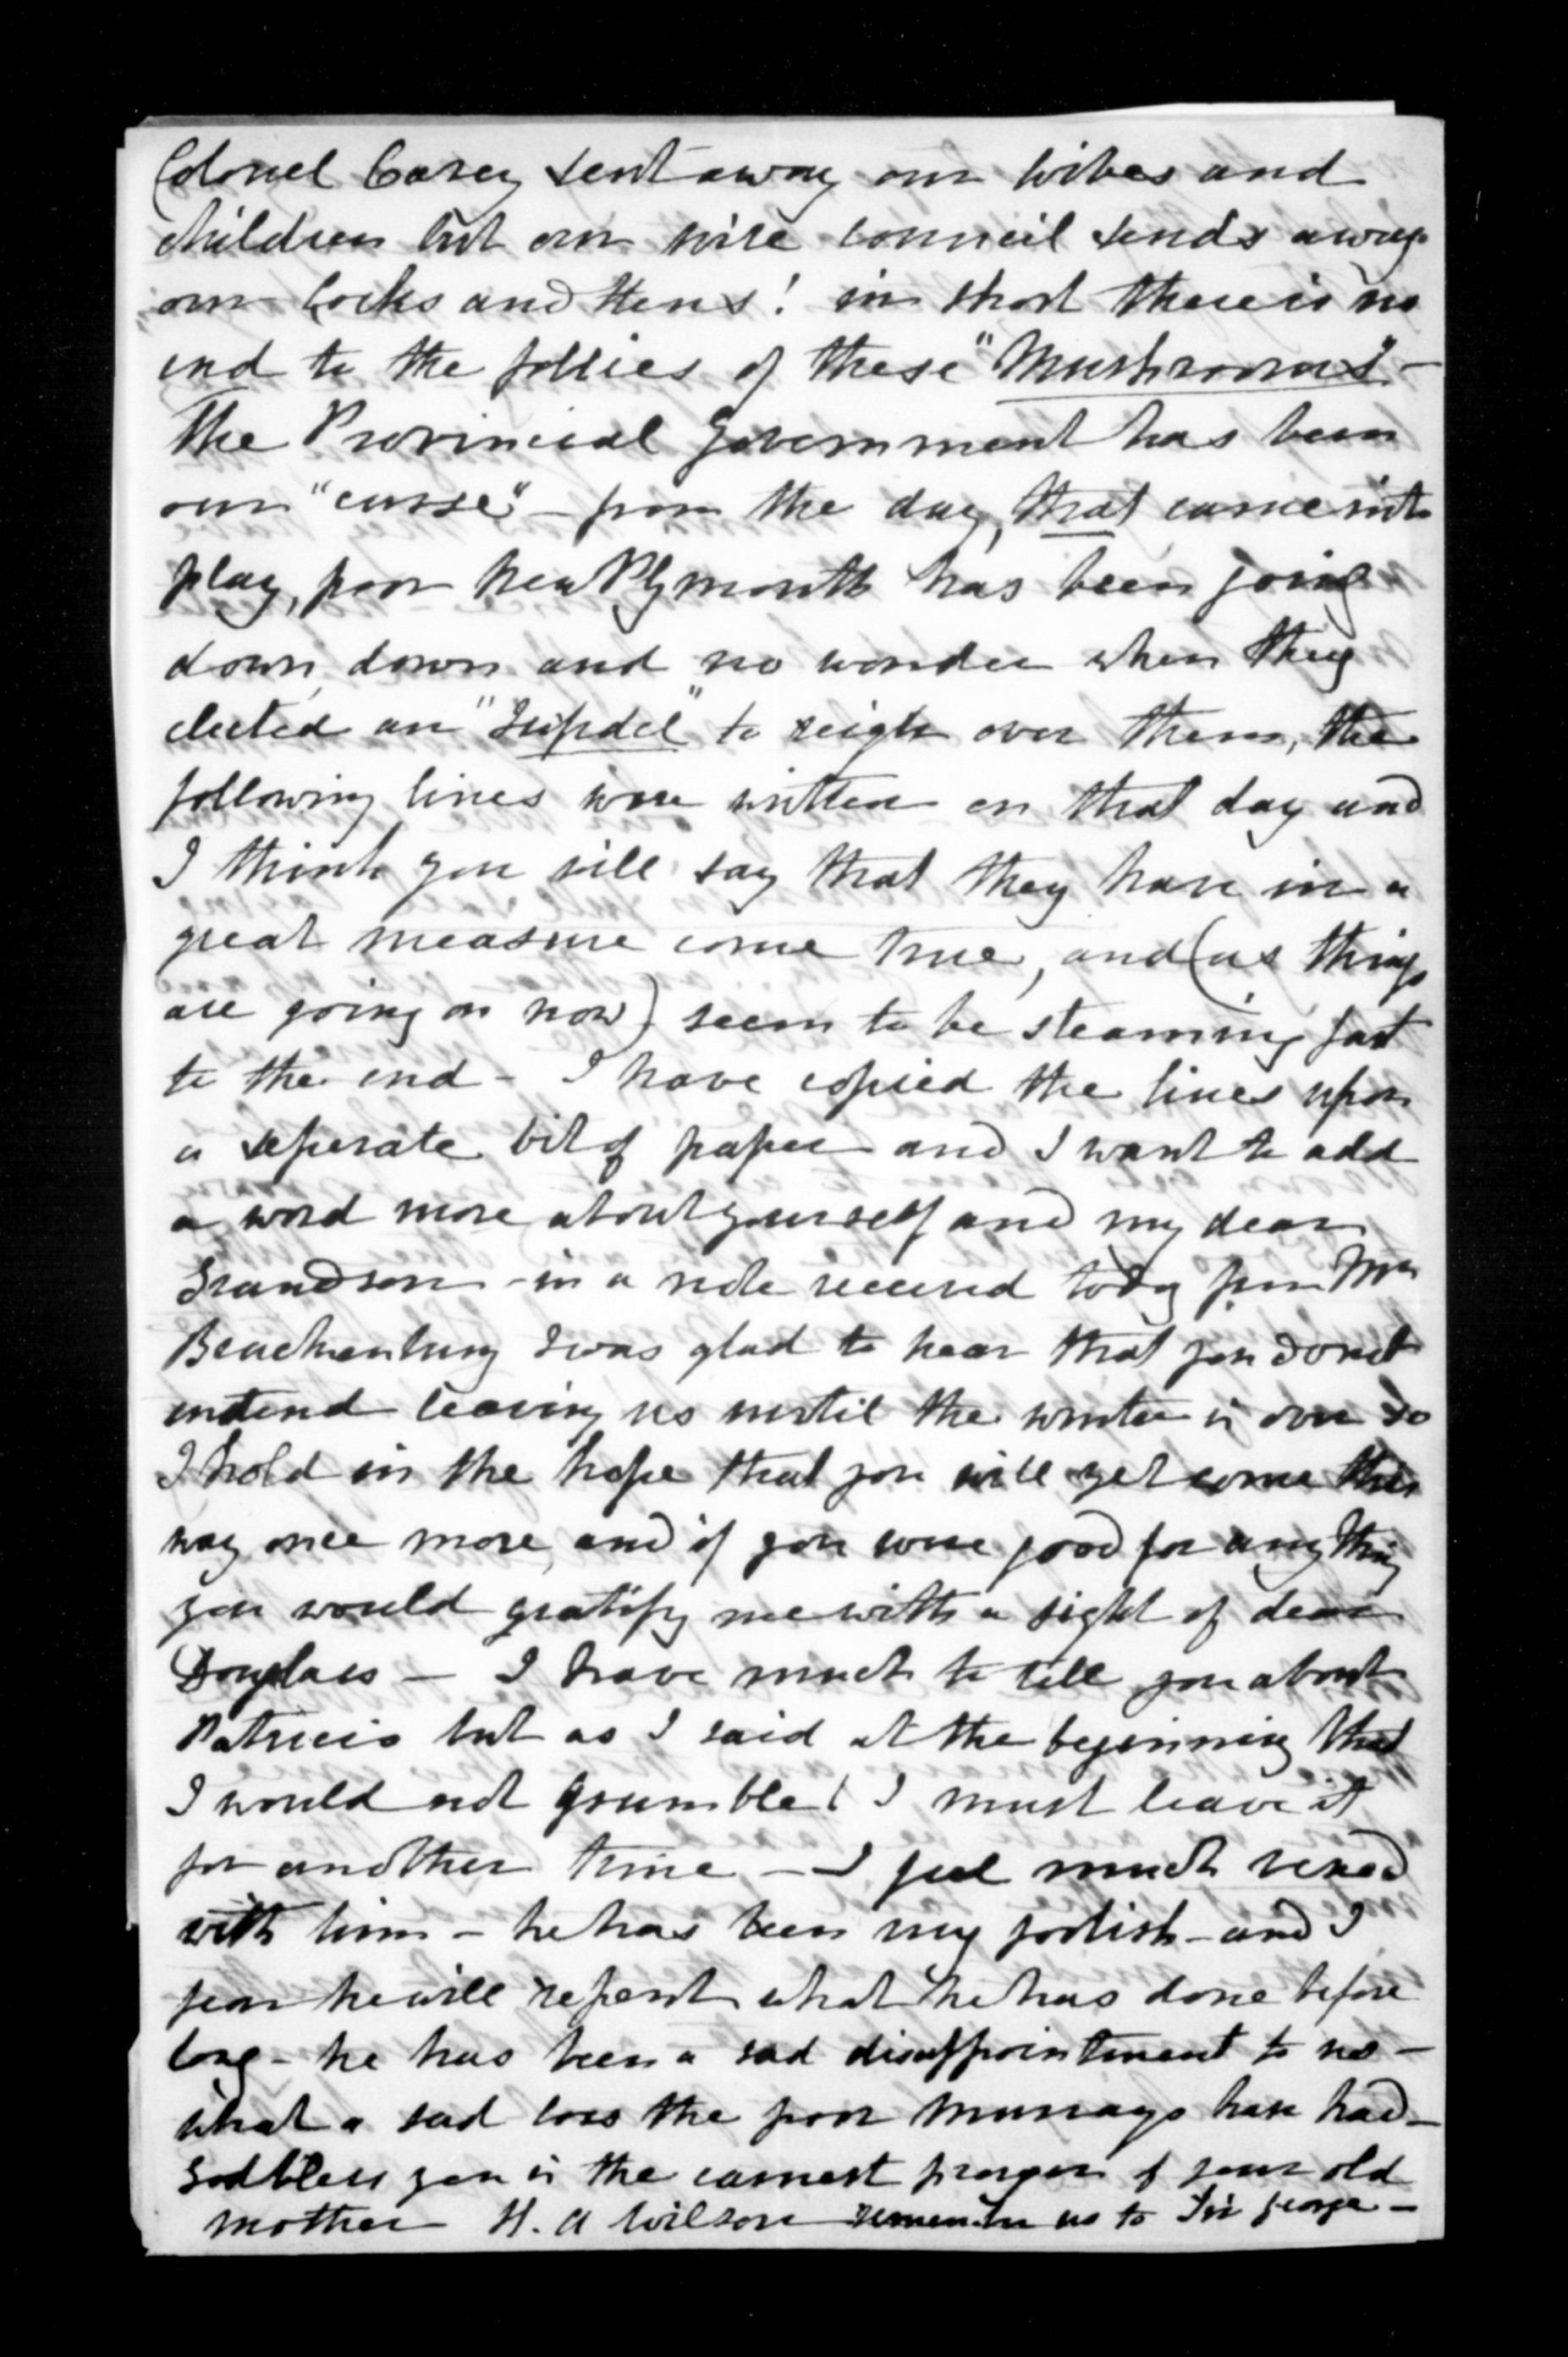 Colonel Carey sent away our wives and
children but our wise council sends away
our Cocks and Hens! in short there is no
end to the follies of these "Mushrooms" -
The Provincial Government has been
our "curse" - from the day, that came into
play, poor New Plymouth has been going
down, down and no wonder when they
elected an "Infidel" to reign over them, the
following lines were written on that day and
I think you will say that they have in a
great measure come true, and (as things
are going on now) seem to be steaming fast
to the end - I have copied the lines upon
a seperate bit of paper and I want to add
a word more about yourself and my dear
Grandson - in a note received today from Mrs
I was glad to hear that you don't
intend leaving us until the winter is over so
I hold in the hope that you will yet come this
way once more, and if you were good for anything
you would gratify me with a sight of dear
Douglas - I have much to tell you about
Patricio but as I said at the beginning that
I would not grumble! I must leave it
for another time - I feel much vexed
with him - he has been very foolish - and I
fear he will repent what he has done before
long - he has been a sad disappointment to us -
what a sad loss the poor Murrays have had -
God bless you is the earnest prayer of your old
mother H. A Wilson remember us to Sir George -